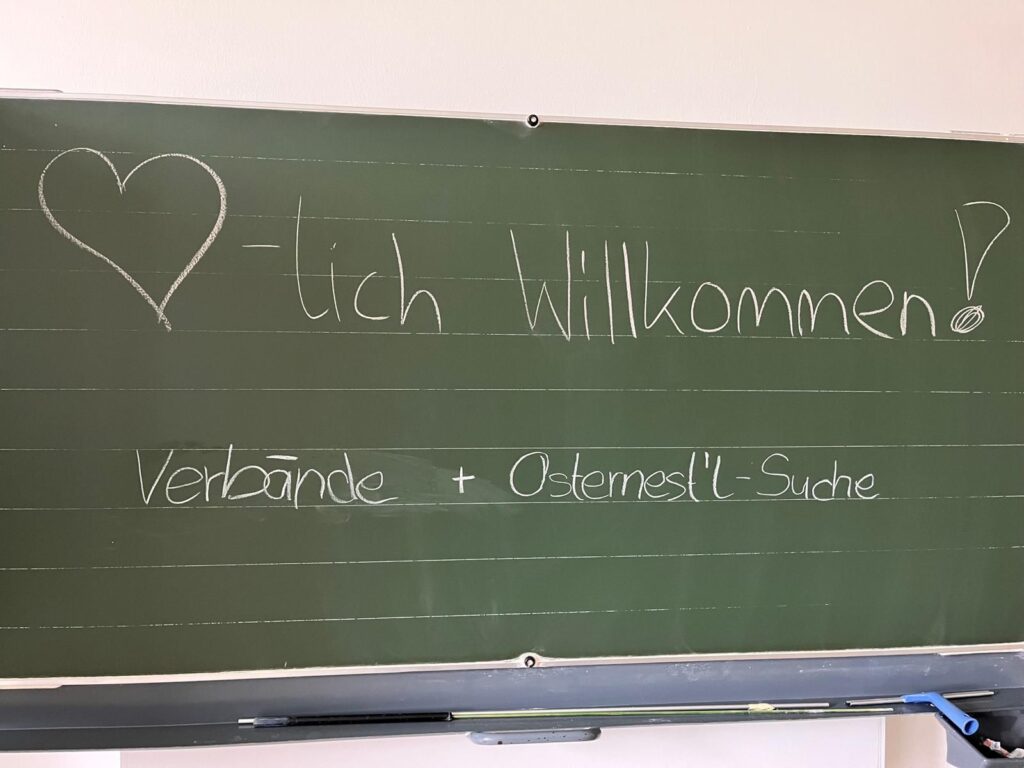 ♥-lich Willkommen!
Verbände + Osternest'l-Suche